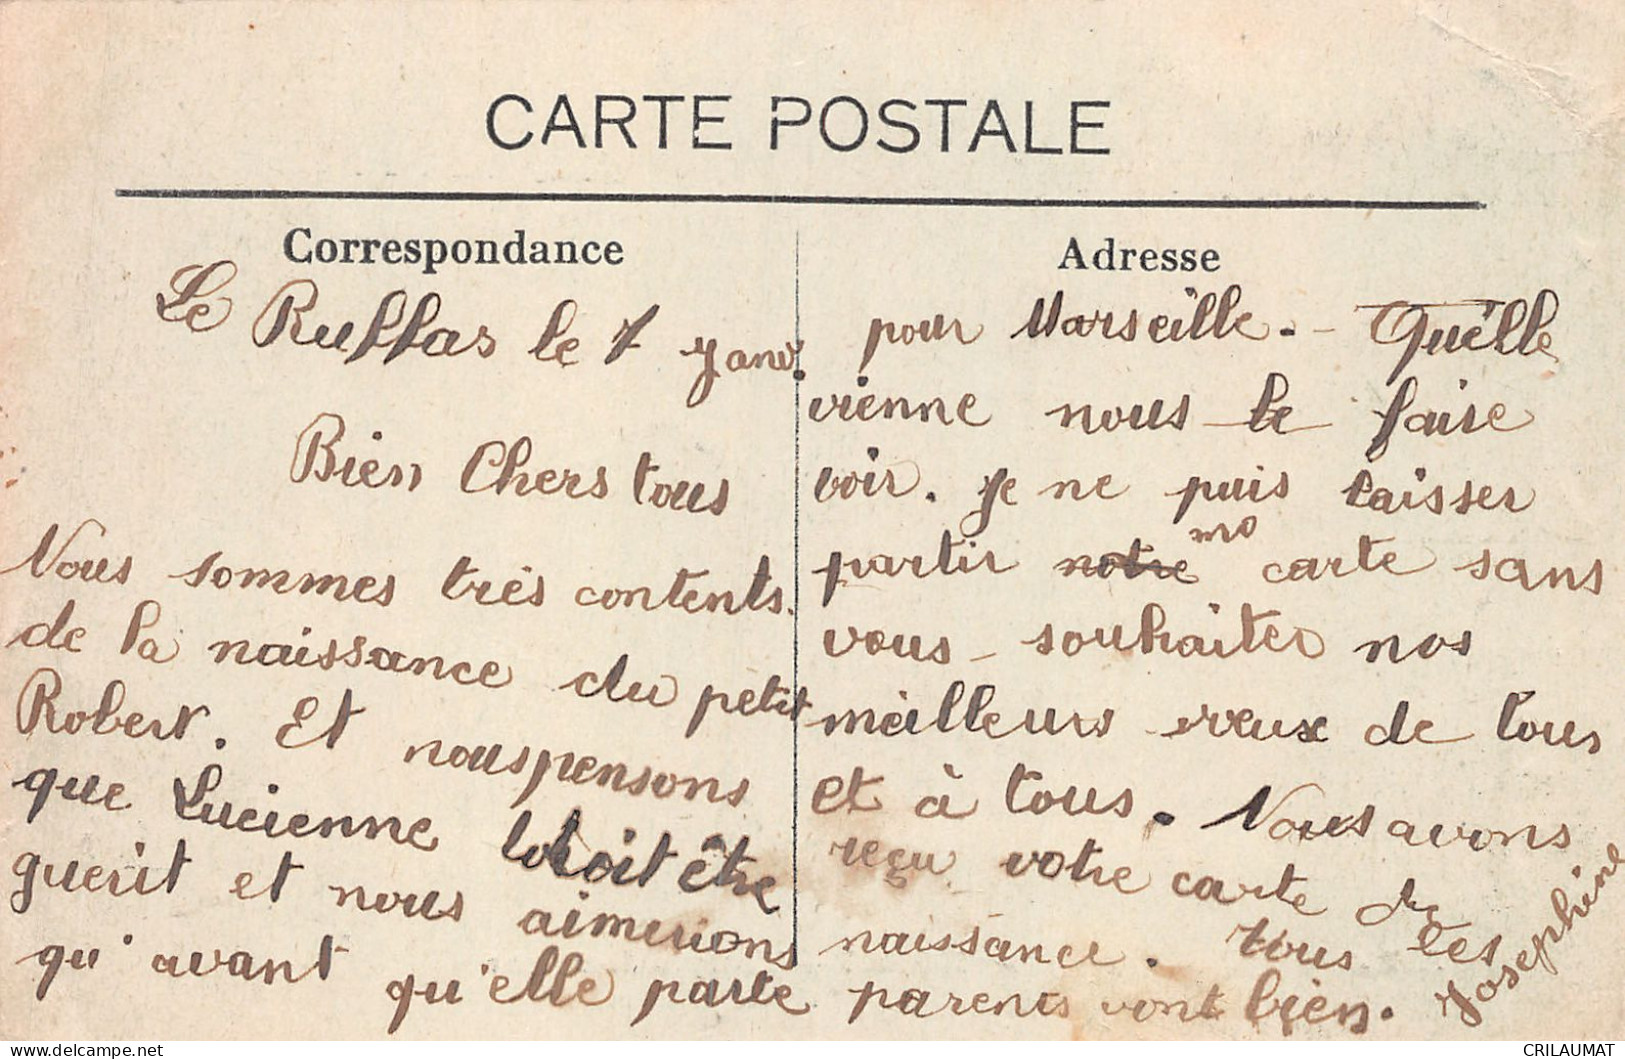 CARTE POSTALE
Correspondance
Le Ruffas le 1 Janv.
Bien Chers tous
Nous sommes très contents
de la naissance du petit
Robert. Et nous pensons
que Lucienne doit être
guerit et nous aimerions
qu'avant qu'elle parte
Adresse
pour Marseille. - Quelle
vienne nous le faire
voir. Je ne puis laisser
partir notre ma carte sans
vous souhaiter nos
meilleurs veux de tous
et à tous. Nous avons
reçu votre carte de
naissance. Tous les
parents vont bien.
Josephine
CRILAUMAT